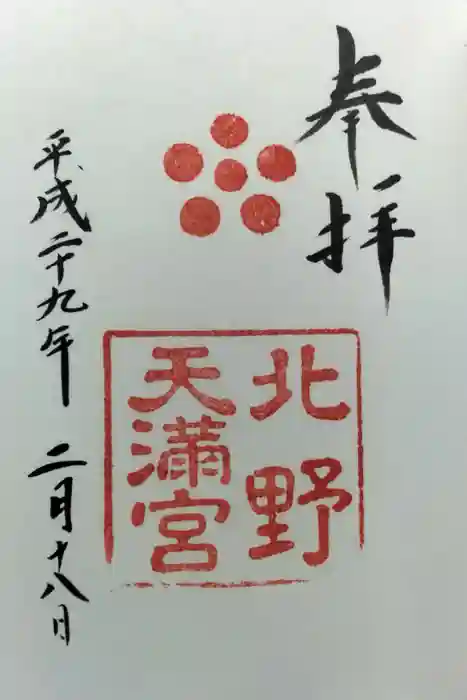 奉拝
北野
天満宮
平成二十九年 二月十八日